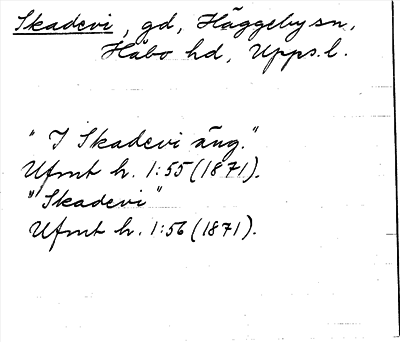 Skadevi, gd, Häggeby sn,
Håbo hd, Upps. l.
"I Skadevi äng."
Ufmt h. 1:55 (1871).
"Skadevi"
Ufmt h. 1:56 (1871).